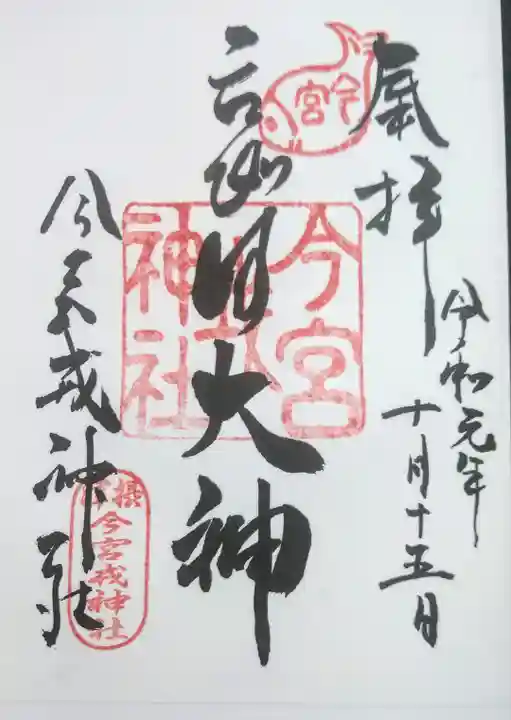 奉拝
令和元年
十月十五日
今宮
大神
今宮戎神社
今宮戎神社
摂津
今宮戎神社